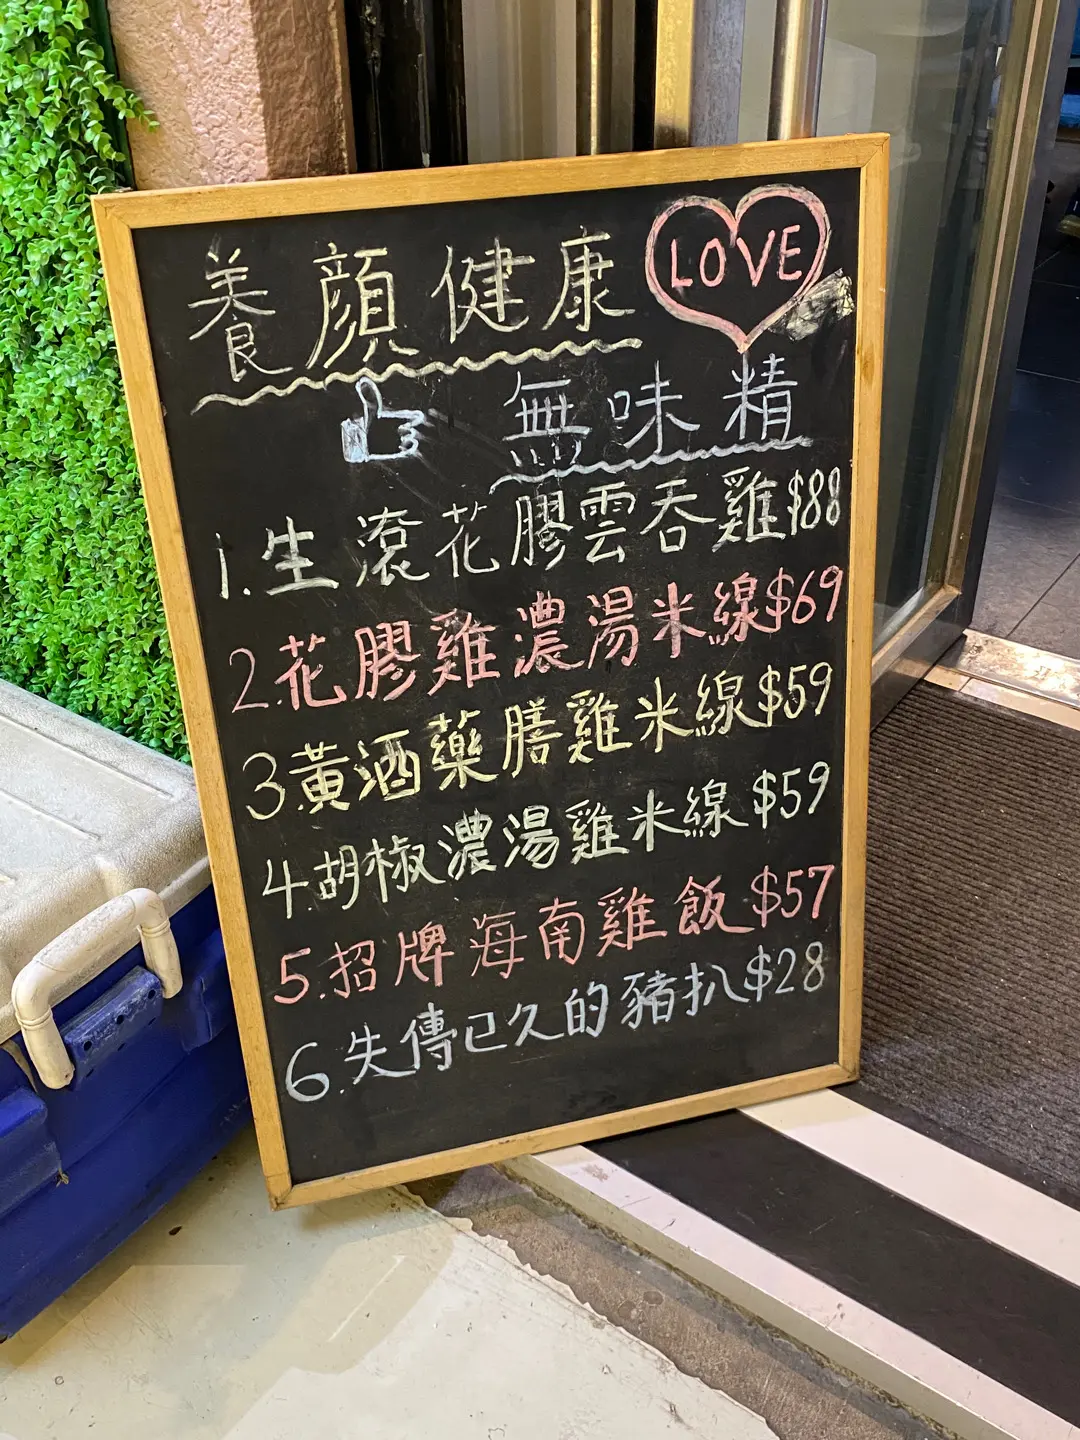 養顏健康
LOVE
無味精
1.生滾花膠雲吞雞$88
2.花膠雞濃湯米線$69
3.黃酒藥膳雞米線$59
4.胡椒濃湯雞米線$59
5.招牌海南雞飯$57
6.失傳已久的豬扒$28